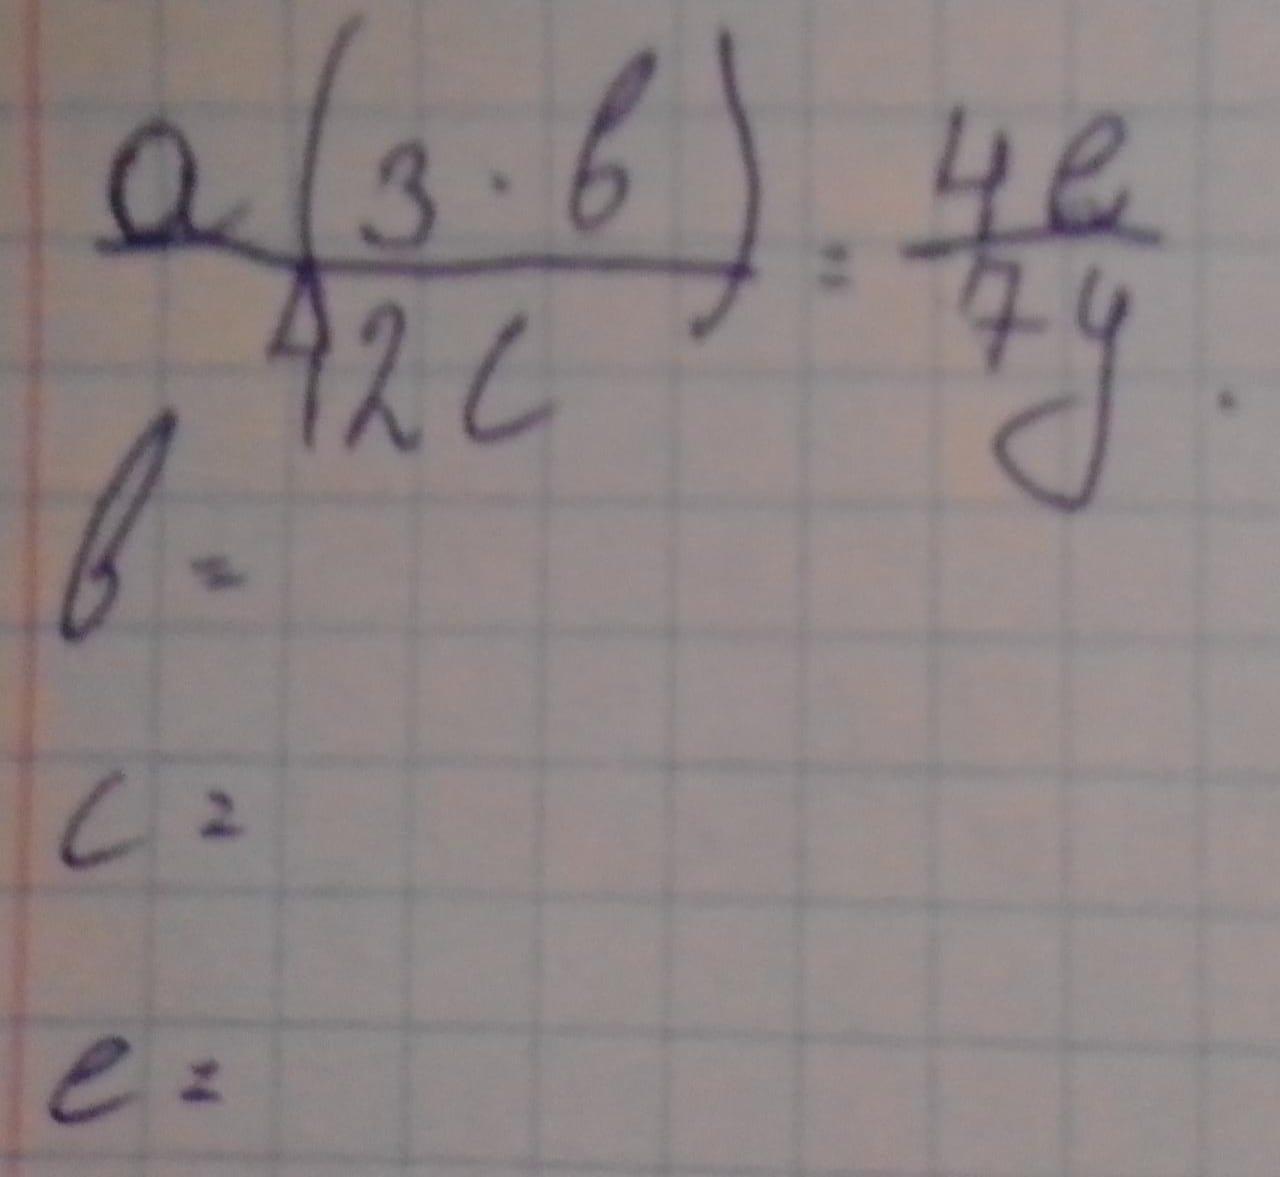 a(3·b)/42c = 4e/7y.
b =
c =
e =